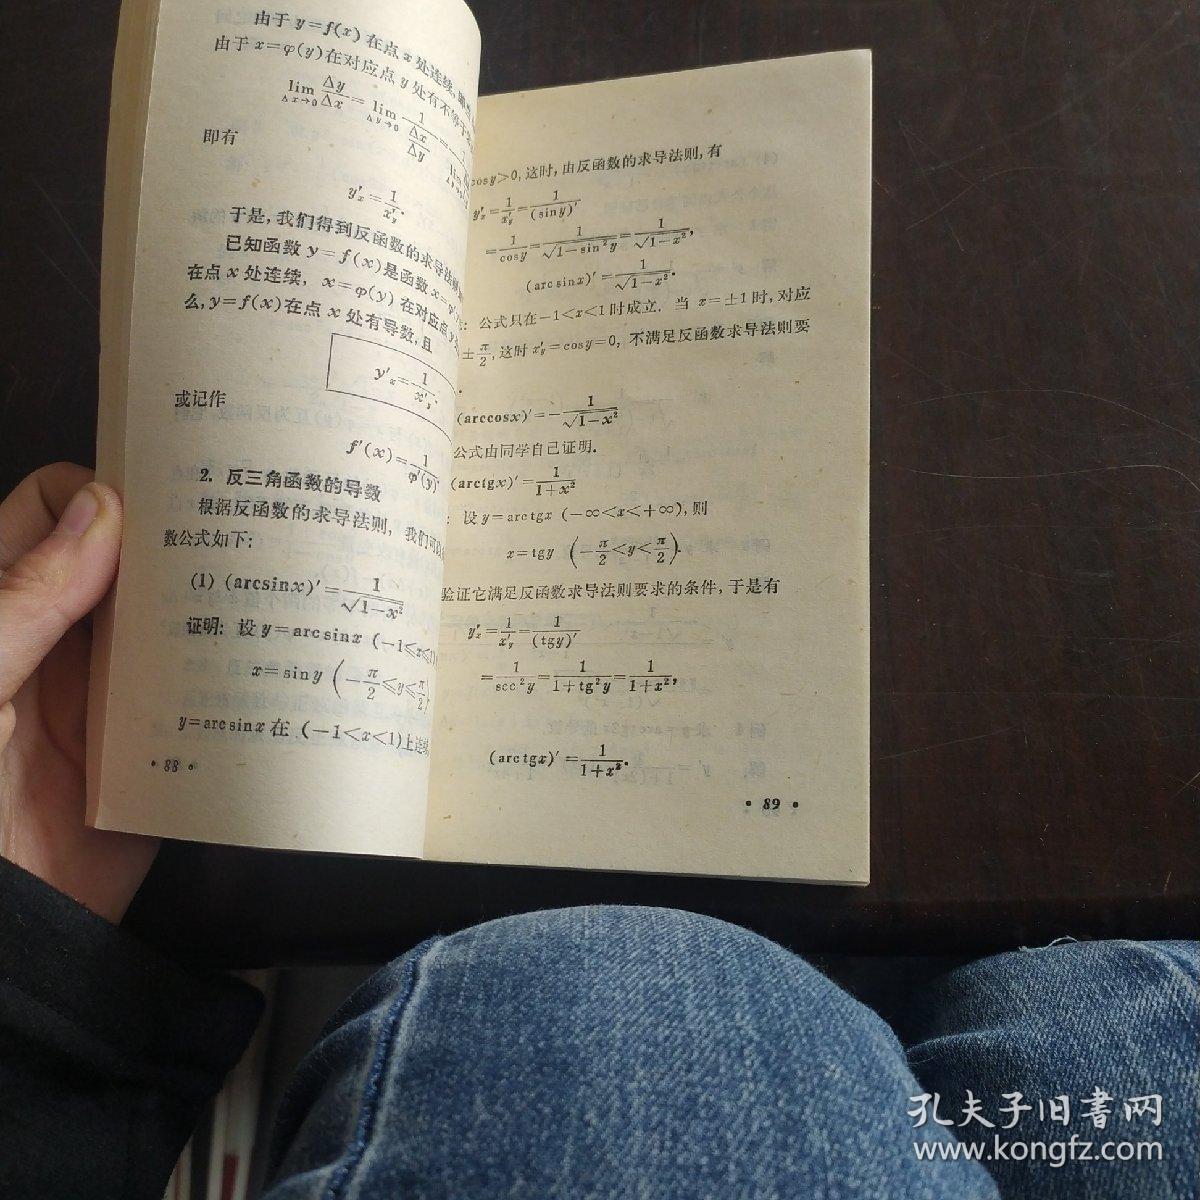 由于 y=f(x) 在点 x 处连续,
由于 x=φ(y)在对应点 y 处有不等于
lim Δx→0 Δy/Δx = lim Δy→0 1/(Δx/Δy) = 1/lim
即有
y′ₓ=1/x′ᵧ.
于是,我们得到反函数的求导法则
已知函数 y=f(x)是函数 x=φ
在点 x 处连续, x=φ(y) 在对应点 y
么, y=f(x)在点 x 处有导数,且
y′ₓ=1/x′ᵧ.
或记作
f′(x)=1/φ′(y).
2. 反三角函数的导数
根据反函数的求导法则, 我们可以
数公式如下:
(1) (arcsinx)′=1/√(1−x²)
证明: 设 y=arcsinx (−1≤x≤1)
x=siny (−π/2≤y≤π/2)
y=arcsinx 在 (−1<x<1)上连续
• 88 •
cosy>0, 这时, 由反函数的求导法则, 有
y′ₓ=1/x′ᵧ=1/(siny)′
=1/cosy=1/√(1−sin²y)=1/√(1−x²),
(arcsinx)′=1/√(1−x²).
: 公式只在−1<x<1 时成立. 当 x=±1 时, 对应
±π/2, 这时 x′ᵧ=cosy=0, 不满足反函数求导法则要
(arccosx)′=−1/√(1−x²)
公式由同学自己证明.
(arctgx)′=1/(1+x²)
: 设 y=arctgx (−∞<x<+∞), 则
x=tgy (−π/2<y<π/2).
验证它满足反函数求导法则要求的条件, 于是有
y′ₓ=1/x′ᵧ=1/(tgy)′
=1/sec²y=1/(1+tg²y)=1/(1+x²),
(arctgx)′=1/(1+x²).
• 89 •
孔夫子旧书网
www.kongfz.com